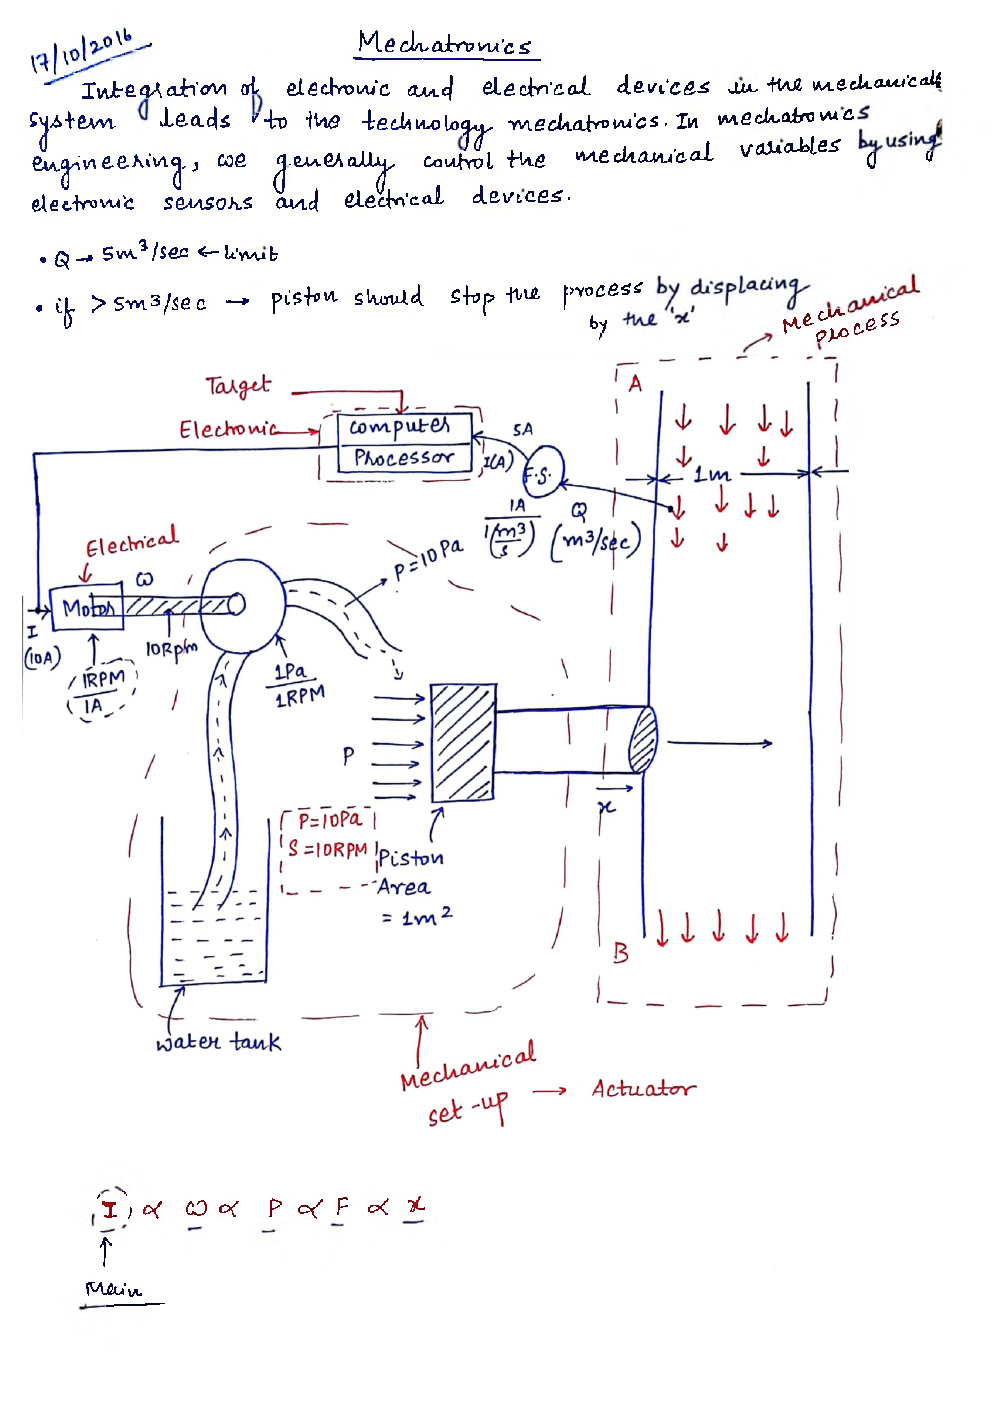 17/10/2016
Mechatronics
Integration of electronic and electrical devices in the mechanical
system leads to the technology mechatronics. In mechatronics
engineering, we generally control the mechanical variables by using
electronic sensors and electrical devices.
• Q → 5m³/sec ← limit
• if > 5m3/sec → piston should stop the process by displacing
by the 'x'
Mechanical
Process
Target
A
Electronic
Computer
Processor
5A
I(A)
F.S.
1m
1A
1(m3/s)
Q
(m³/sec)
Electrical
P=10Pa
ω
Motor
I
(10A)
10Rpm
1RPM
1A
1Pa
1RPM
P
x
P=10Pa
S=10RPM
Piston
Area
= 1m2
B
water tank
Mechanical
set-up → Actuator
I ∝ ω ∝ P ∝ F ∝ x
Main